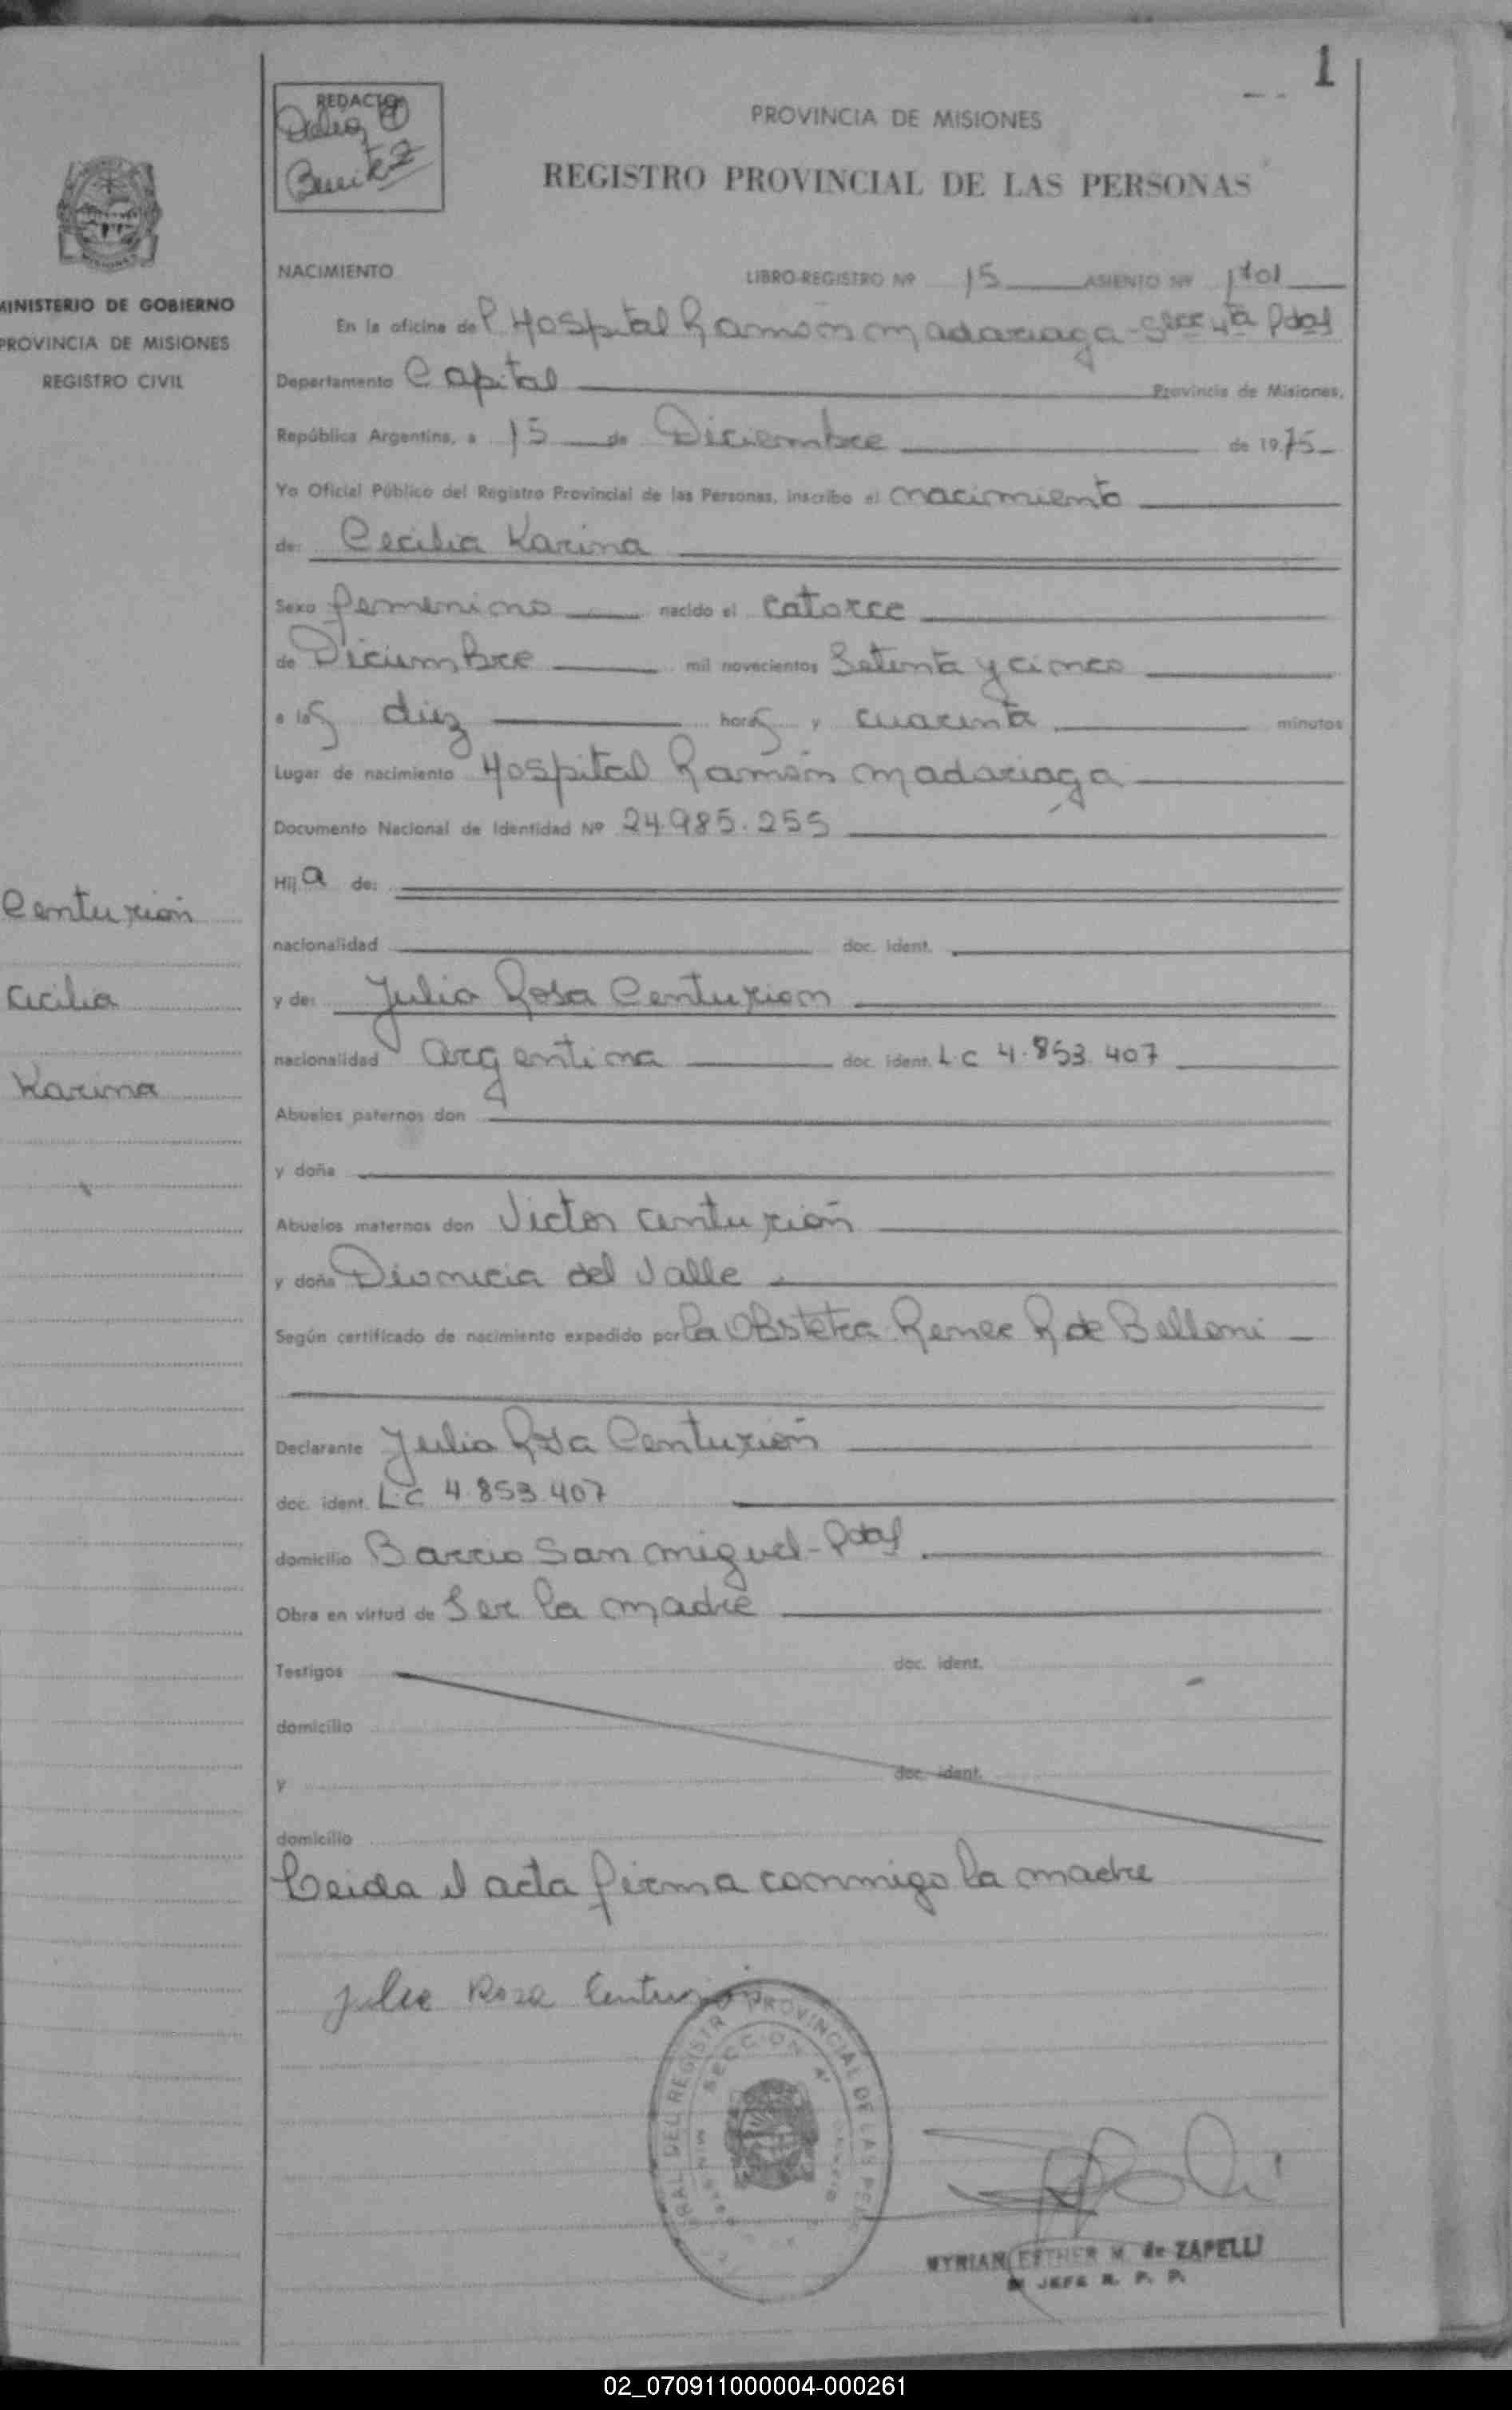 1
REDACTO
Benitez
PROVINCIA DE MISIONES
REGISTRO PROVINCIAL DE LAS PERSONAS
MINISTERIO DE GOBIERNO
PROVINCIA DE MISIONES
REGISTRO CIVIL
NACIMIENTO LIBRO-REGISTRO Nº 15 ASIENTO Nº 1701
En la oficina del Hospital Ramón Madariaga - Secc 4ta Pdas
Departamento Capital Provincia de Misiones,
República Argentina, a 15 de Diciembre de 1975
Yo Oficial Público del Registro Provincial de las Personas, inscribo el nacimiento
de: Cecilia Karina
Sexo femenino nacido el catorce
de Diciembre mil novecientos Setenta y cinco
a las diez horas y cuarenta minutos
Lugar de nacimiento Hospital Ramón Madariaga
Documento Nacional de Identidad Nº 24.985.255
Hija de:
nacionalidad doc. ident.
y de: Julia Rosa Centurion
nacionalidad argentina doc. ident. L.C 4.853.407
Abuelos paternos don
y doña
Abuelos maternos don Victor Centurión
y doña Dionicia del Valle
Según certificado de nacimiento expedido por la Obstetra Renee R de Belloni
Declarante Julia Rosa Centurión
doc. ident. L.C 4.853.407
domicilio Barrio San Miguel - Pdas
Obra en virtud de Ser la madre
Testigos doc. ident.
domicilio
y doc. ident.
domicilio
Leida el acta firma conmigo la madre
Centurión
Cecilia
Karina
Julia Rosa Centurión
REGISTR PROVINCIAL DE LAS PER
SECCION 4ª
MYRIAN ESTHER M. de ZAPELLI
JEFE R. P. P.
02_070911000004-000261